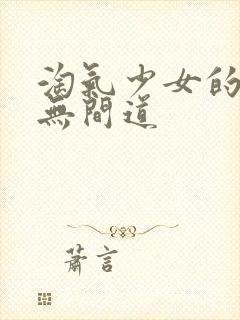 淘氣少女的
無間道
蕭言